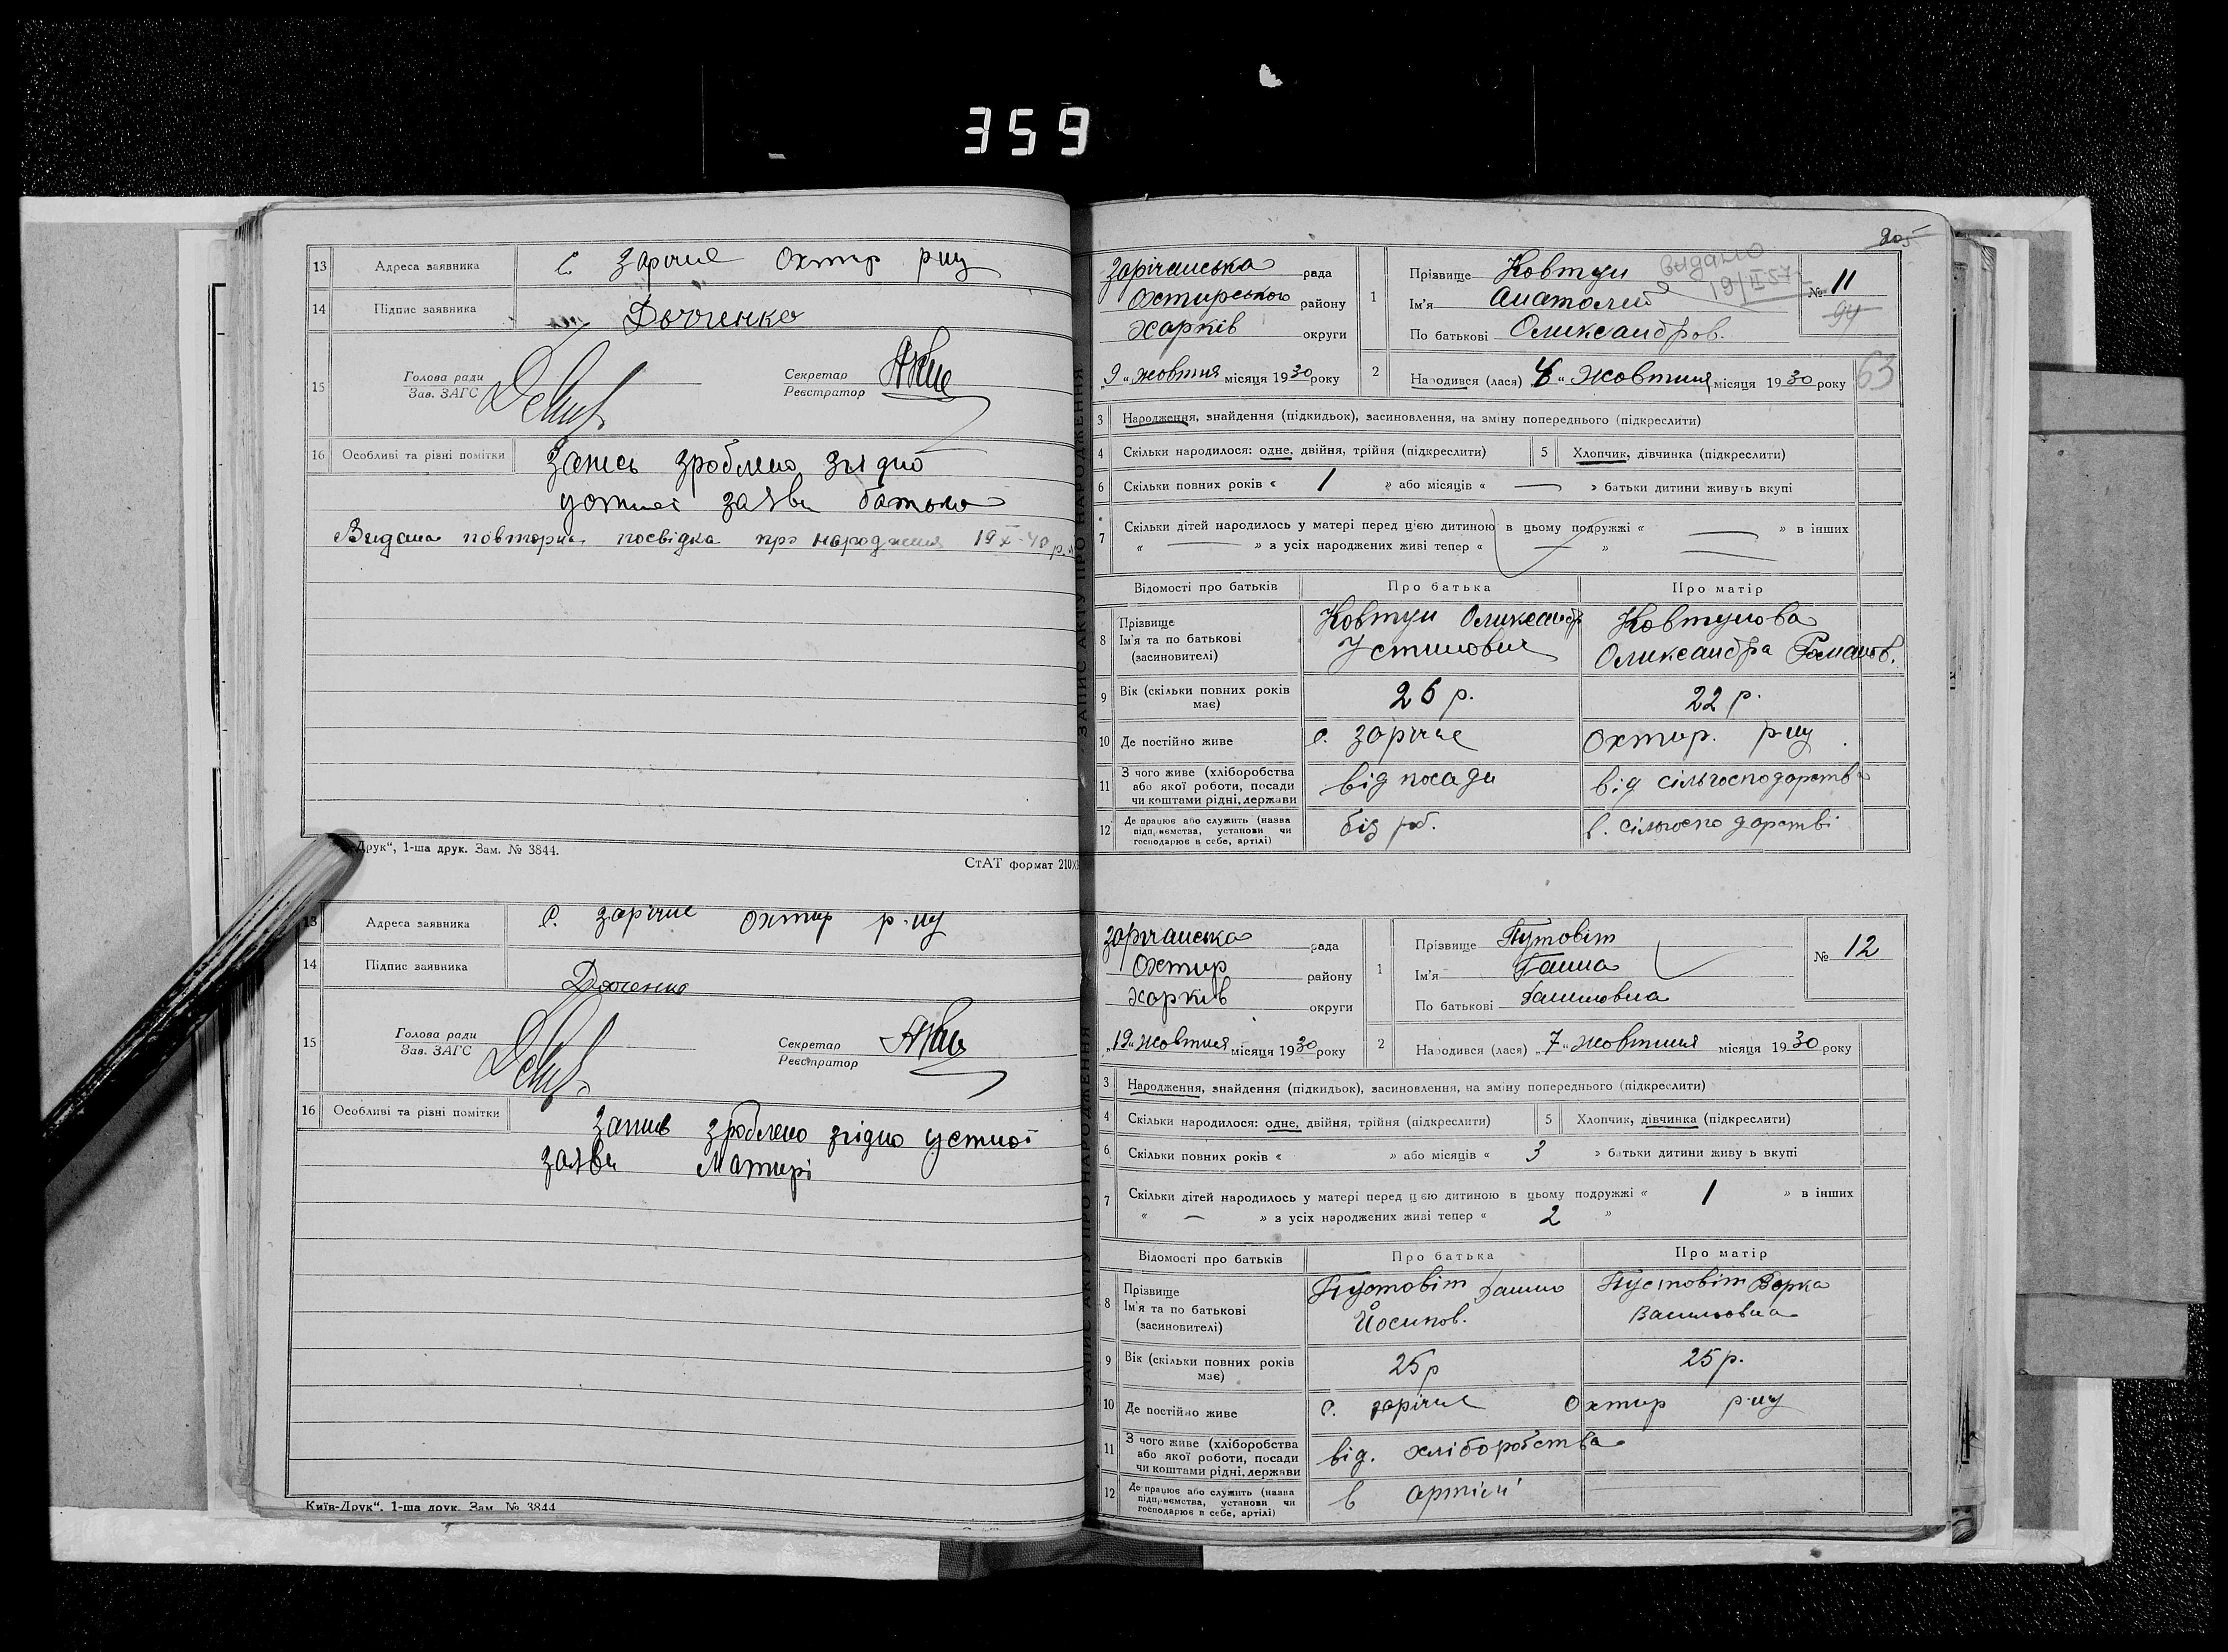 359
13 Адреса заявника с. Зарічне Охтир р-ну
14 Підпис заявника
15 Голова ради
Зав. ЗАГС
Секретар
Реєстратор
16 Особливі та різні помітки Запись зроблено згідно
устної заяви батька
Видана повторна посвідка про народження 19 X-40 р.
Друк“, 1-ша друк. Зам. № 3844.
СтАТ формат 210
13 Адреса заявника с. Зарічне Охтир р-ну
14 Підпис заявника
15 Голова ради
Зав. ЗАГС
Секретар
Реєстратор
16 Особливі та різні помітки Запись зроблено згідно устної
заяви матирі
Київ-Друк“, 1-ша друк. Зам. № 3844
ЗАПИС АКТУ ПРО НАРОДЖЕННЯ
205
Зарічанська рада
Охтирського району
Харків округи
„9“ жовтня місяця 1930 року
1 Прізвище Ковтун
Ім'я Анатолий
По батькові Олександров.
видано
19/II 57
№ 11
94
2 Народився (лася) „4“ жовтння місяця 1930 року
63
3 Народження, знайдення (підкидьок), засиновлення, на зміну попереднього (підкреслити)
4 Скільки народилося: одне, двійня, трійня (підкреслити) 5 Хлопчик, дівчинка (підкреслити)
6 Скільки повних років « 1 » або місяців « — » батьки дитини живуть вкупі
7 Скільки дітей народилось у матері перед цією дитиною в цьому подружжі « — » в інших
« — » з усіх народжених живі тепер « — »
Відомості про батьків Про батька Про матір
8 Прізвище
Ім'я та по батькові
(засиновителі)
Ковтун Олександр
Устинович
Ковтунова
Олександра Романов.
9 Вік (скільки повних років має) 26 р. 22 р.
10 Де постійно живе с. Зарічне Охтир. р-ну
11 З чого живе (хліборобства
або якої роботи, посади
чи коштами рідні, держави
від посади від сільгосподарства
12 Де працює або служить (назва
підприємства, установи чи
господарює в себе, артілі)
без роб. в. сільгосподарстві
ЗАПИС АКТУ ПРО НАРОДЖЕННЯ
Зарічанська рада
Охтир району
Харків округи
„19“ жовтня місяця 1930 року
1 Прізвище Путовіт
Ім'я Ганна
По батькові Даниловна
№ 12
2 Народився (лася) „7“ жовтння місяця 1930 року
3 Народження, знайдення (підкидьок), засиновлення, на зміну попереднього (підкреслити)
4 Скільки народилося: одне, двійня, трійня (підкреслити) 5 Хлопчик, дівчинка (підкреслити)
6 Скільки повних років « » або місяців « 3 » батьки дитини живуь вкупі
7 Скільки дітей народилось у матері перед цією дитиною в цьому подружжі « 1 » в інших
« — » з усіх народжених живі тепер « 2 »
Відомості про батьків Про батька Про матір
8 Прізвище
Ім'я та по батькові
(засиновителі)
Пустовіт Данило
Йосипов.
Пустовіт Варка
Васильовна
9 Вік (скільки повних років має) 25 р 25 р.
10 Де постійно живе с. Зарічне Охтир р-ну
11 З чого живе (хліборобства
або якої роботи, посади
чи коштами рідні, держави
від. хліборобства
12 Де працює або служить (назва
підприємства, установи чи
господарює в себе, артілі)
в артілі